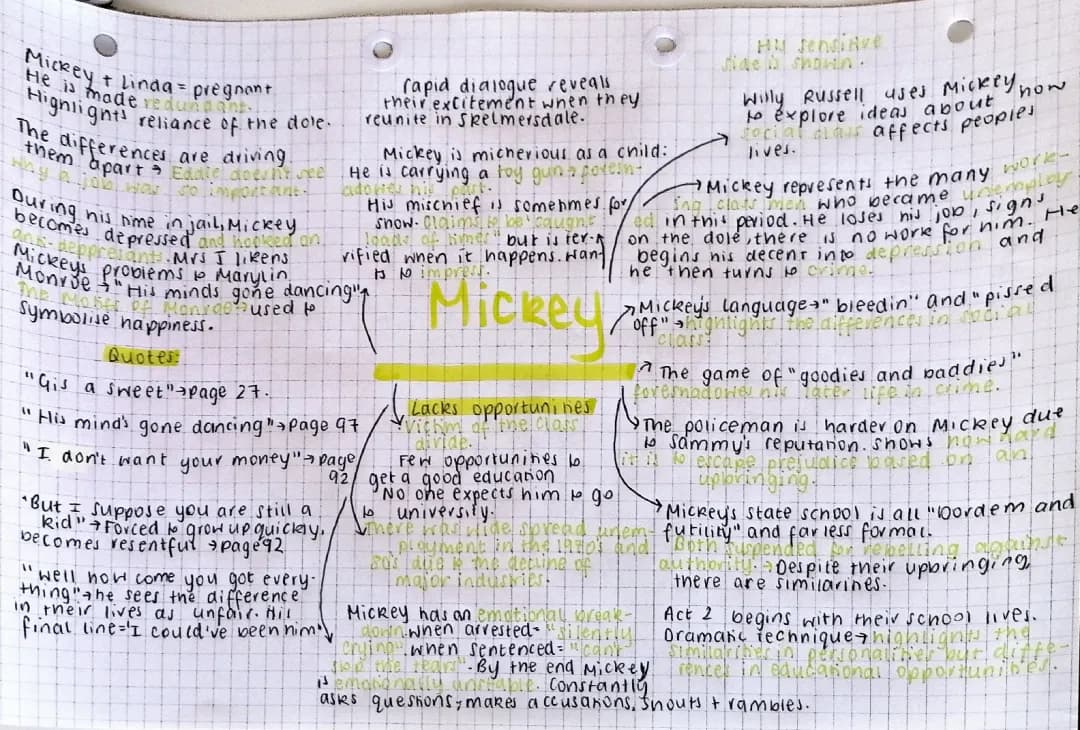 Mickey + Linda = pregnant
He is made redundant.
Highlights reliance of the dole.
The differences are driving
them apart → Eddie doesn't see
why a job was so important.
During his time in jail, Mickey
becomes depressed and hooked on
anti-deppresants. Mrs J likens
Mickeys problems to Marylin
Monroe → "His minds gone dancing"
The Motif of Monroe → used to
symbolise happiness.
Quotes:
"Gis a sweet" → page 27.
"His mind's gone dancing" → page 97
"I don't want your money" → page
92
"But I suppose you are still a
kid" → Forced to grow up quickly,
becomes resentful → page 92
"Well how come you got every-
thing" → he sees the difference
in their lives as unfair. His
final line = "I could've been him"
rapid dialogue reveals
their excitement when they
reunite in Skelmersdale.
Mickey is michevious as a child:
He is carrying a toy gun →
adowes his part.
His mischief is sometimes for
show. Claims to be "caught
loads of times" but is ter-
rified when it happens. Want
is to impress.
Mickey
Lacks opportunities
Victim of the class
divide.
Few opportunities to
get a good education
No one expects him to go
to university.
There was wide spread unem-
ployment in the 1970's and
80's due to the decline of
major industries.
Mickey has an emotional break-
down when arrested = "silently
crying". when sentenced = "cant
stop the tears". By the end Mickey
is emotionally unstable. Constantly
asks questions, makes accusations, shouts + rambles.
His sensitive
side is shown.
Willy Russell uses Mickey
to explore ideas about how
social class affects peoples
lives.
→ Mickey represents the many work-
ing class men who became unemploy
ed in this period. He loses his job, signs
on the dole, there is no work for him. He
begins his decent into depression and
he then turns to crime.
Mickey's language → "bleedin" and "pissed
off" → highlights the differences in social
class.
The game of "goodies and baddies"
foreshadowes his later life in crime.
The policeman is harder on Mickey due
to Sammy's reputation. Shows how hard
it is to escape prejudice based on an
upbringing.
Mickey's state school is all "bordem and
futility" and far less formal.
Both suspended for rebelling against
authority. → Despite their upbringing
there are similarities.
Act 2 begins with their school lives.
Dramatic technique → highlights the
similarities in personalities but diffe-
rences in educational opportunities.